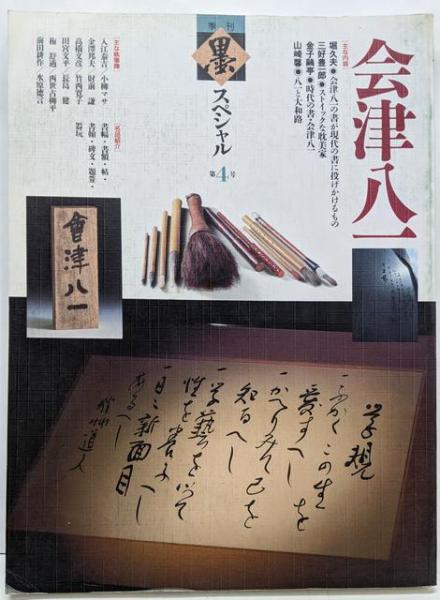 会津八一
[主な内容]
堀久夫●会津八一の書が現代の書に投げかけるもの
三好豊一郎●ストイックな耽美家
金子鷗亭●時代の書・会津八一
山崎馨●八一と大和路
季刊
墨
スペシャル
第4号
[主な執筆陣]
入江泰吉・小柳マサ
金澤邦夫・財前 謙
高橋文彦・竹西寛子
田宮文平・長島 健
梅 舒適・西世古柳平
前田耕作・水原徳言
[名品紹介]
書幅・書額・帖・
書翰・碑文・題簽・
器玩
會津
八一
学規
一ふかくこの生を
愛すへし
一かへりみて己を
知るへし
一学藝を以て
性を養ふへし
一日々新面目
あるへし
道人